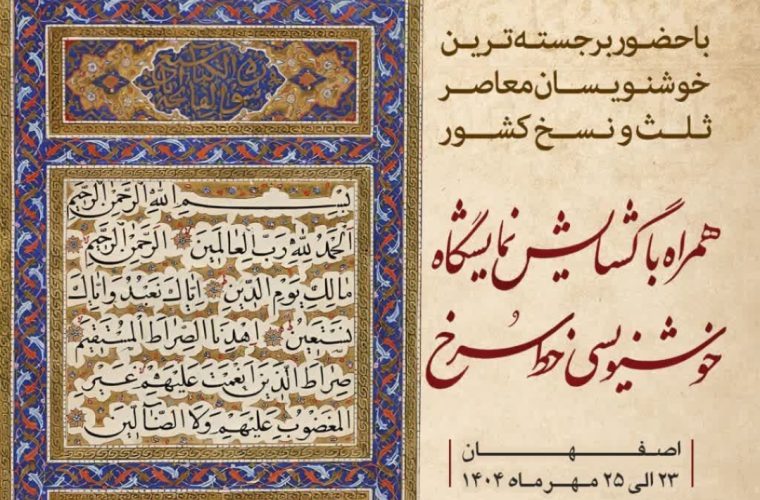 باحضور برجسته‌ترین
خوشنویسان معاصر
ثلث و نسخ کشور
همراه با گشایش نمایشگاه
خوشنویسی خط سرخ
اصفهان
۲۳ الی ۲۵ مهرماه ۱۴۰۴
بِسْمِ اللهِ الرَّحْمٰنِ الرَّحِيمِ
اَلْحَمْدُ لِلّٰهِ رَبِّ الْعَالَمِينَ الرَّحْمٰنِ الرَّحِيمِ
مَالِكِ يَوْمِ الدِّينِ اِيَّاكَ نَعْبُدُ وَاِيَّاكَ
نَسْتَعِينُ اِهْدِنَا الصِّرَاطَ الْمُسْتَقِيمَ
صِرَاطَ الَّذِينَ اَنْعَمْتَ عَلَيْهِمْ غَيْرِ
الْمَغْضُوبِ عَلَيْهِمْ وَلَا الضَّالِّينَ